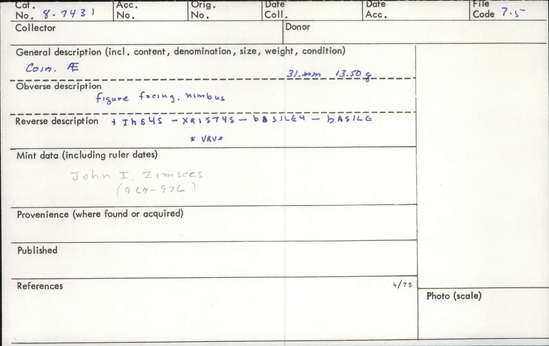 Cat. No. 8-7431 Acc. No. Orig. No. Date Coll. Date Acc. File Code 7.5
Collector Donor
General description (incl. content, denomination, size, weight, condition)
Coin. Æ
31 mm 13.50 g
Obverse description
figure facing. nimbus
Reverse description + IhSUS - XRISTUS - bASILEU - bASILE
Mint data (including ruler dates)
John I. Zimisces
(969-976)
Provenience (where found or acquired)
Published
References 4/75
Photo (scale)